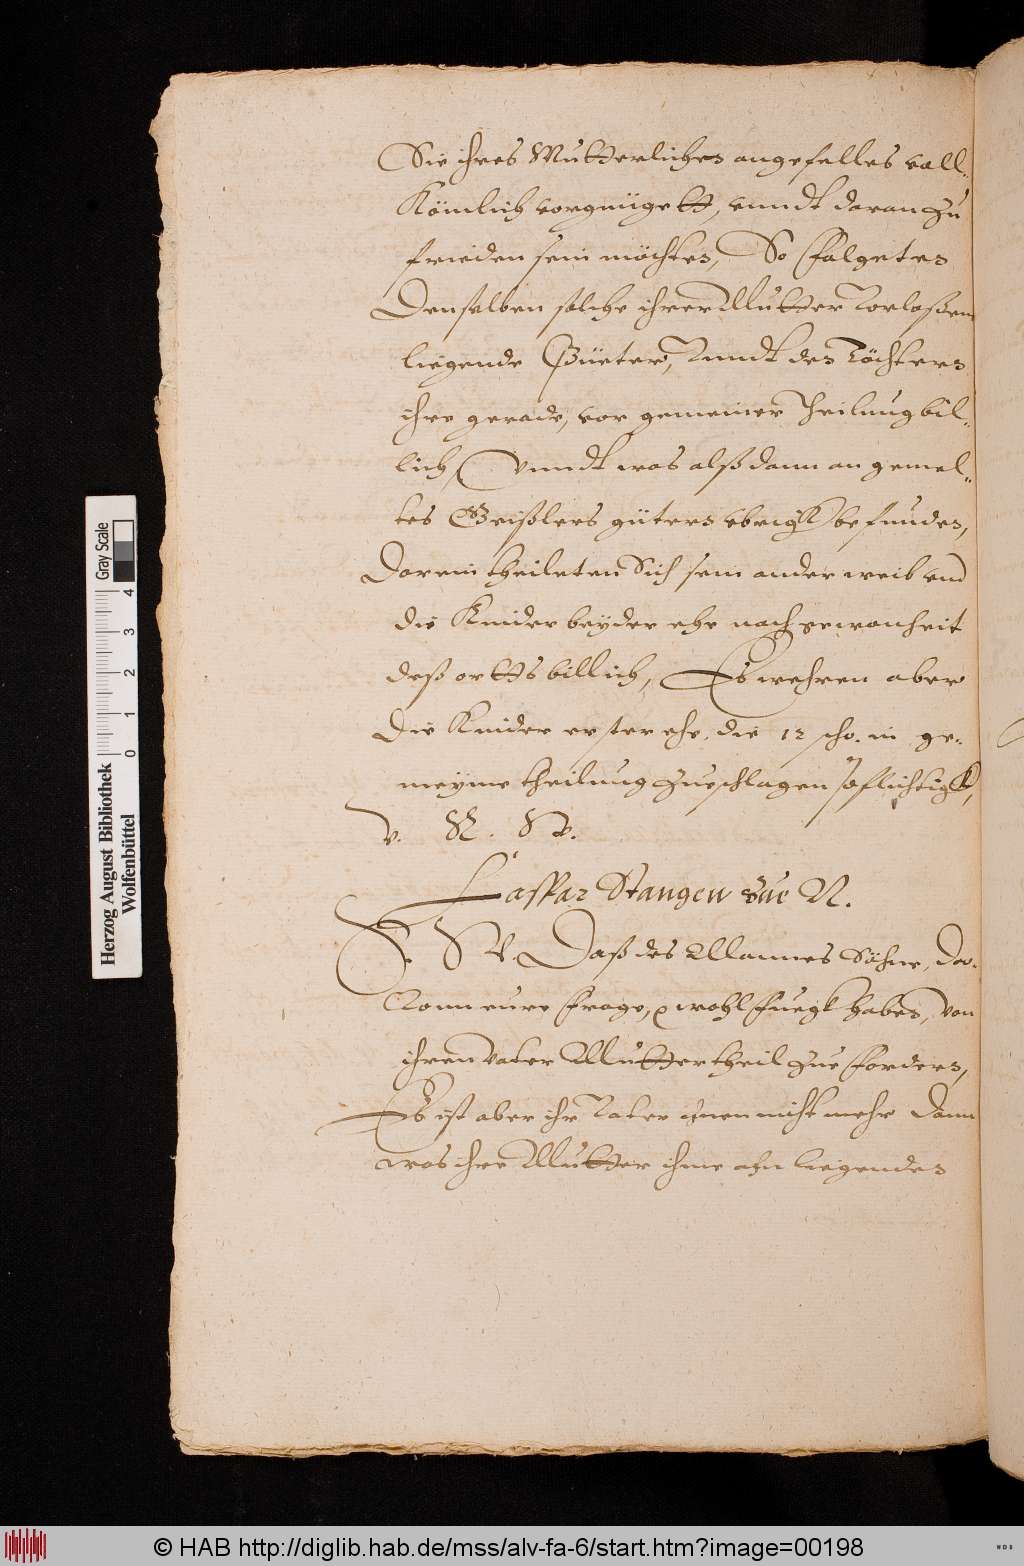 Sie ihres Mutterlichen angefelles voll-
kömlich vorgnügett, unndt daran zu
frieden sein möchten, So folgeten
Denselben solche ihrer Mutter Vorlaßene
liegende Güeter, Vnndt den Töchtern
ihre gerade, vor gemeiner theilung bil-
lich, Vnndt was alßdann an gemel-
tes Geißlers gütern vbrigk befunden,
Darein theileten Sich sein ander weib vnd
die Kinder beyder ehe nach gewonheit
deß ortts billich, Es wehren aber
Die Kinder erster ehe, die 12 scho. in ge-
meyne theilung zueschlagen pflichtigk,
v. R. W.
Caspar Stangen zue N.
Daß des Mannes Söhne, da-
Vonn eure frage, wohl fuegk haben, von
ihren Vater Muttertheil zue fordern,
Es ist aber ihr Vater ihnen nicht mehr Dann
was ihre Mutter ihme ahn liegenden
Herzog August Bibliothek
Wolfenbüttel
Gray Scale
0 1 2 3 4
© HAB http://diglib.hab.de/mss/alv-fa-6/start.htm?image=00198